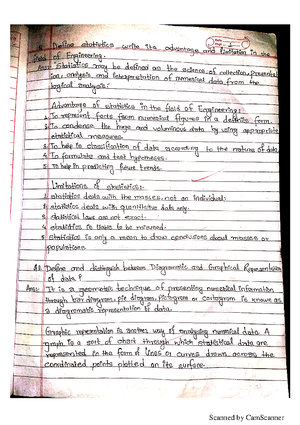 1. Define statistics. write its advantage and limitation in the
field of Engineering.
Ans: Statistics may be defined as the science of collection, presentat
ion, analysis and interpretation of numerical data from the
logical analysis.
Advantage of statistics in the field of Engineering:
1. To represent facts from numerical figures in a definite form.
2. To condense the huge and voluminous data by using appropriate
statistical measures.
3. To help in classification of data according to the nature of data.
4. To formulate and test hypotheses.
5. To help in predicting future trends.
Limitations of statistics:
1. statistics deals with the masses, not an individual.
2. statistics deals with quantitative data only.
3. statistical laws are not exact.
4. statistics is liable to be misused.
5. statistics is only a mean to draw conclusions about masses or
populations.
Define and distinguish between Diagrammatic and Graphical Representation
of data?
Ans: It is a geometric technique of presenting numerical information
through bar diagram, pie diagram, pictogram or cartogram is known as
a diagrammatic representation of data.
Graphic representation is another way of analysing numerical data. A
graph is a sort of chart through which statistical data are
represented in the form of lines or curves drawn across the
coordinated points plotted on its surface.
Scanned by CamScanner